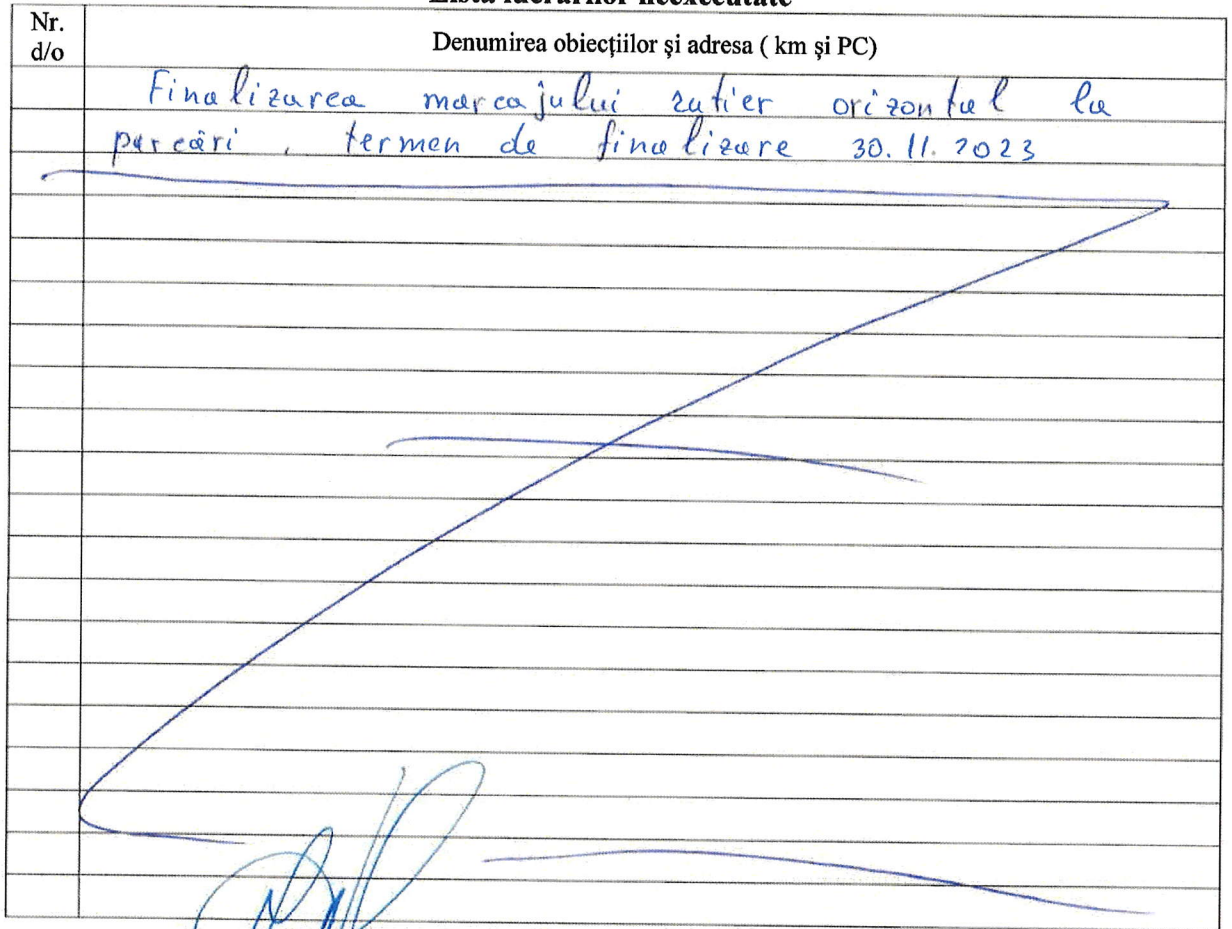 Lista lucrărilor neexecutate
Nr.
d/o
Denumirea obiecțiilor și adresa ( km și PC)
Finalizarea marcajului rutier orizontal la
parcări, termen de finalizare 30.11.2023